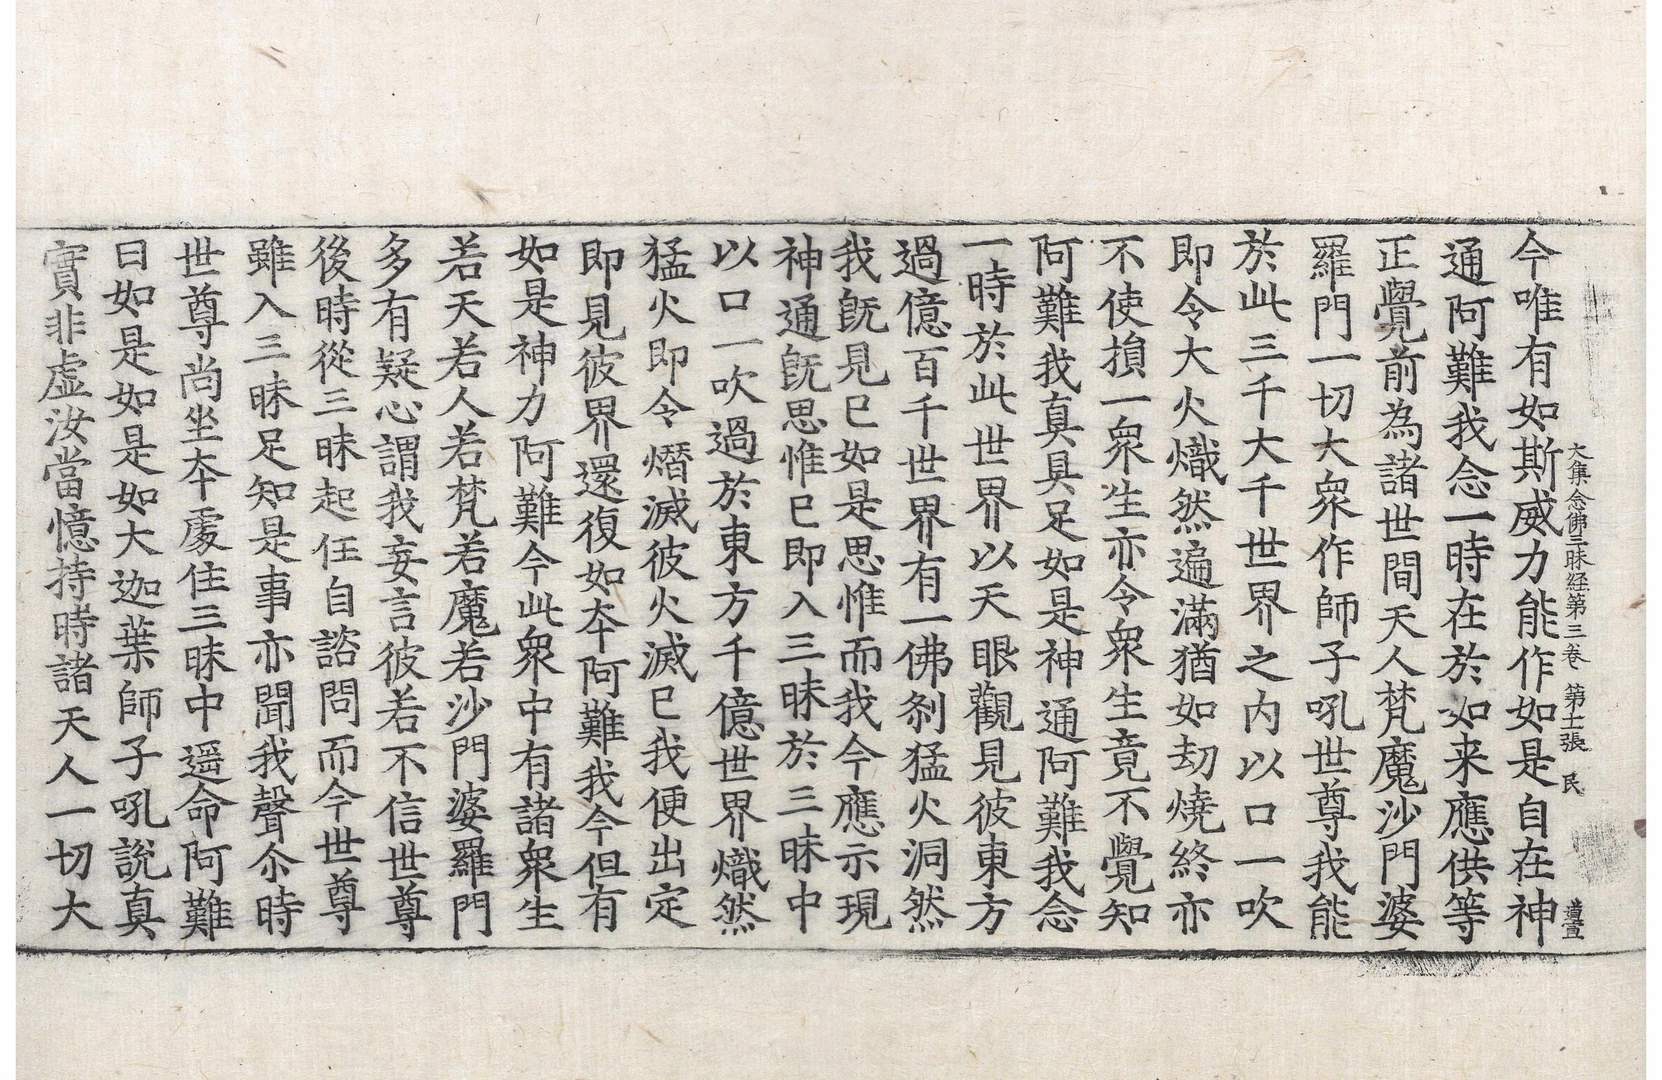 大集念佛三昧経第三卷 第十二張 民
今唯有如斯威力能作如是自在神
通阿難我念一時在於如来應供等
正覺前為諸世間天人梵魔沙門婆
羅門一切大衆作師子吼世尊我能
於此三千大千世界之内以口一吹
即令大火熾然遍滿猶如劫燒終亦
不使損一衆生亦令衆生竟不覺知
阿難我真具足如是神通阿難我念
一時於此世界以天眼觀見彼東方
過億百千世界有一佛刹猛火洞然
我既見已如是思惟而我今應示現
神通既思惟已即入三昧於三昧中
以口一吹過於東方千億世界熾然
猛火即令熸滅彼火滅已我便出定
即見彼界還復如夲阿難我今但有
如是神力阿難今此衆中有諸衆生
若天若人若梵若魔若沙門婆羅門
多有疑心謂我妄言彼若不信世尊
後時從三昧起任自諮問而今世尊
雖入三昧足知是事亦聞我聲尒時
世尊尚坐夲處住三昧中遥命阿難
曰如是如是如大迦葉師子吼說真
實非虛汝當憶持時諸天人一切大